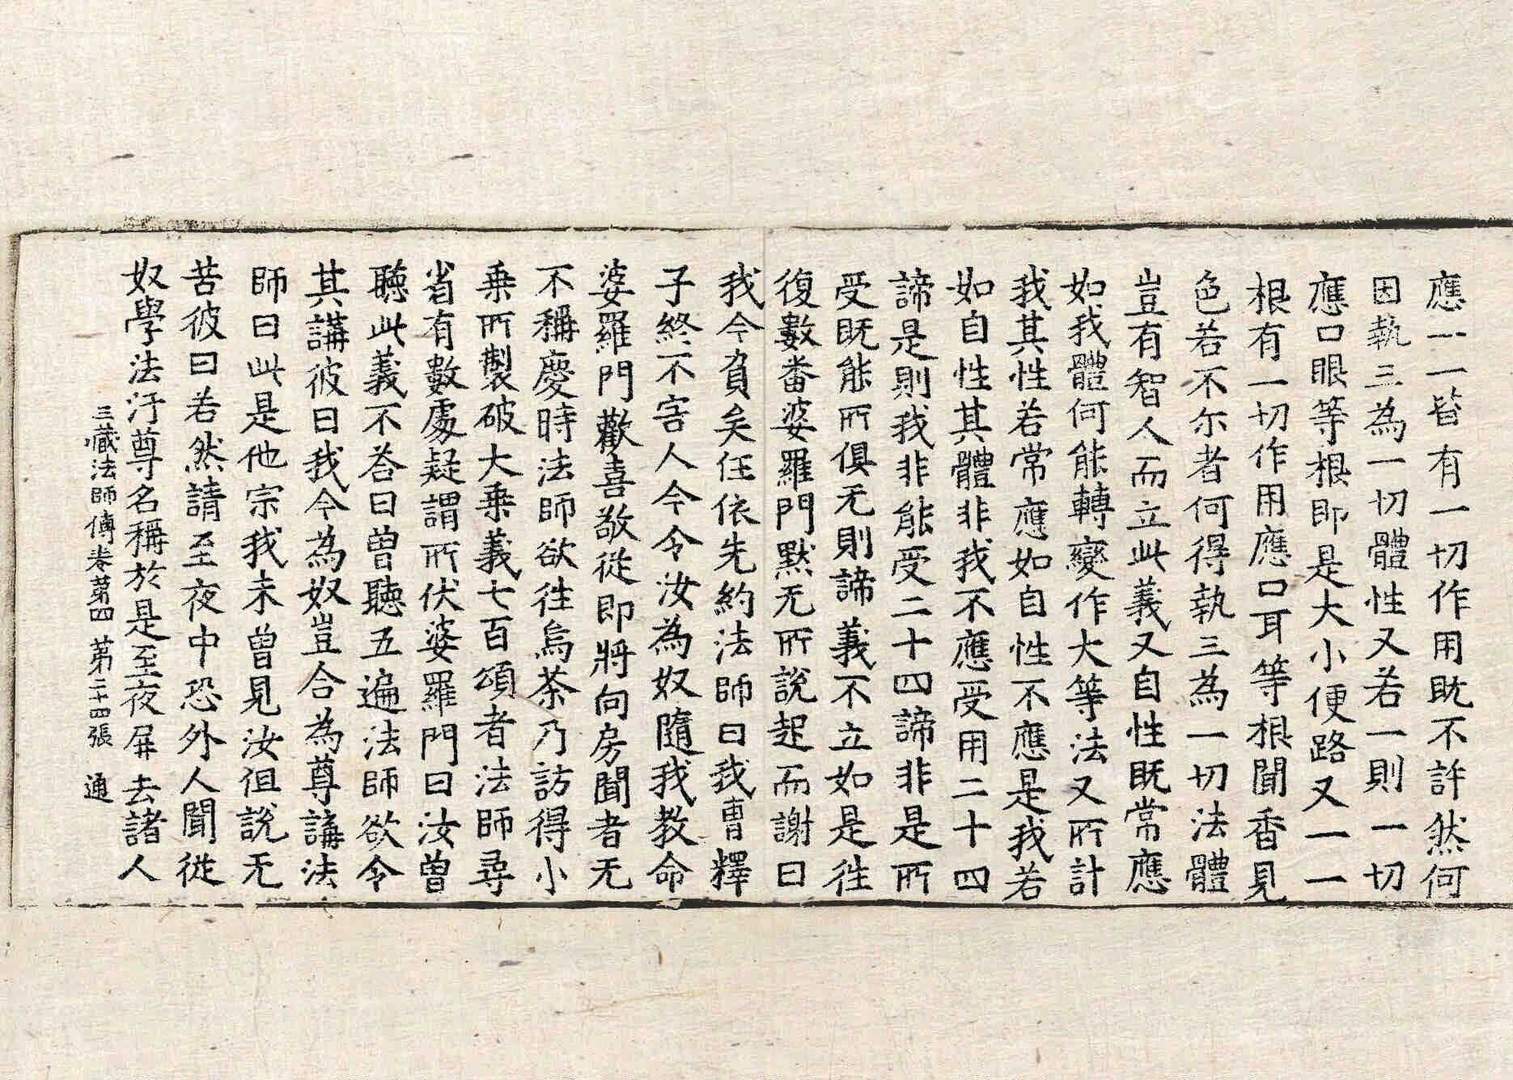 應一一皆有一切作用旣不許然何
因執三為一切體性又若一則一切
應口眼等根即是大小便路又一一
根有一切作用應口耳等根聞香見
色若不尔者何得執三為一切法體
豈有智人而立此義又自性旣常應
如我體何能轉變作大等法又所計
我其性若常應如自性不應是我若
如自性其體非我不應受用二十四
諦是則我非能受二十四諦非是所
受旣能所俱无則諦義不立如是徃
復數番婆羅門默无所說起而謝曰
我今負矣任依先約法師曰我曹釋
子終不害人今令汝為奴隨我教命
婆羅門歡喜敬從即將向房聞者无
不稱慶時法師欲徃烏茶乃訪得小
乘所製破大乘義七百頌者法師尋
省有數處疑謂所伏婆羅門曰汝曾
聽此義不荅曰曾聽五遍法師欲令
其講彼曰我今為奴豈合為尊講法
師曰此是他宗我未曾見汝但說无
苦彼曰若然請至夜中恐外人聞從
奴學法汙尊名稱於是至夜屏去諸人
三藏法師傳卷第四 第二十四張 通